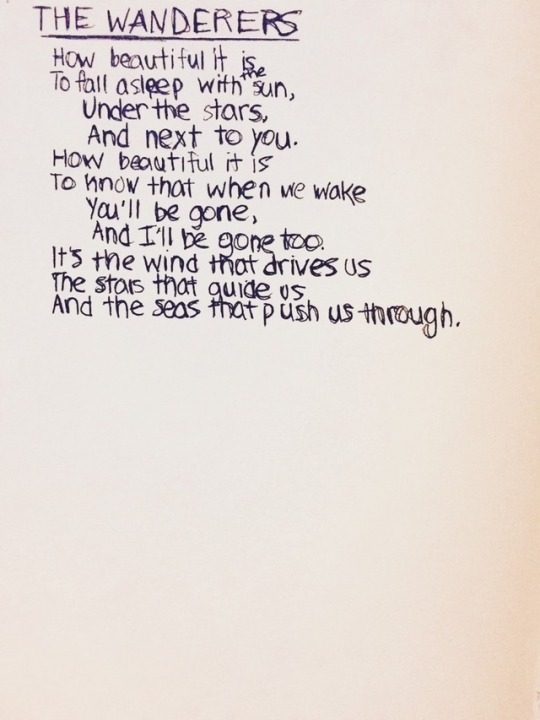 THE WANDERERS
How beautiful it is
To fall asleep with the sun,
Under the stars,
And next to you.
How beautiful it is
To know that when we wake
You'll be gone,
And I'll be gone too.
It's the wind that drives us
The stars that guide us
And the seas that push us through.